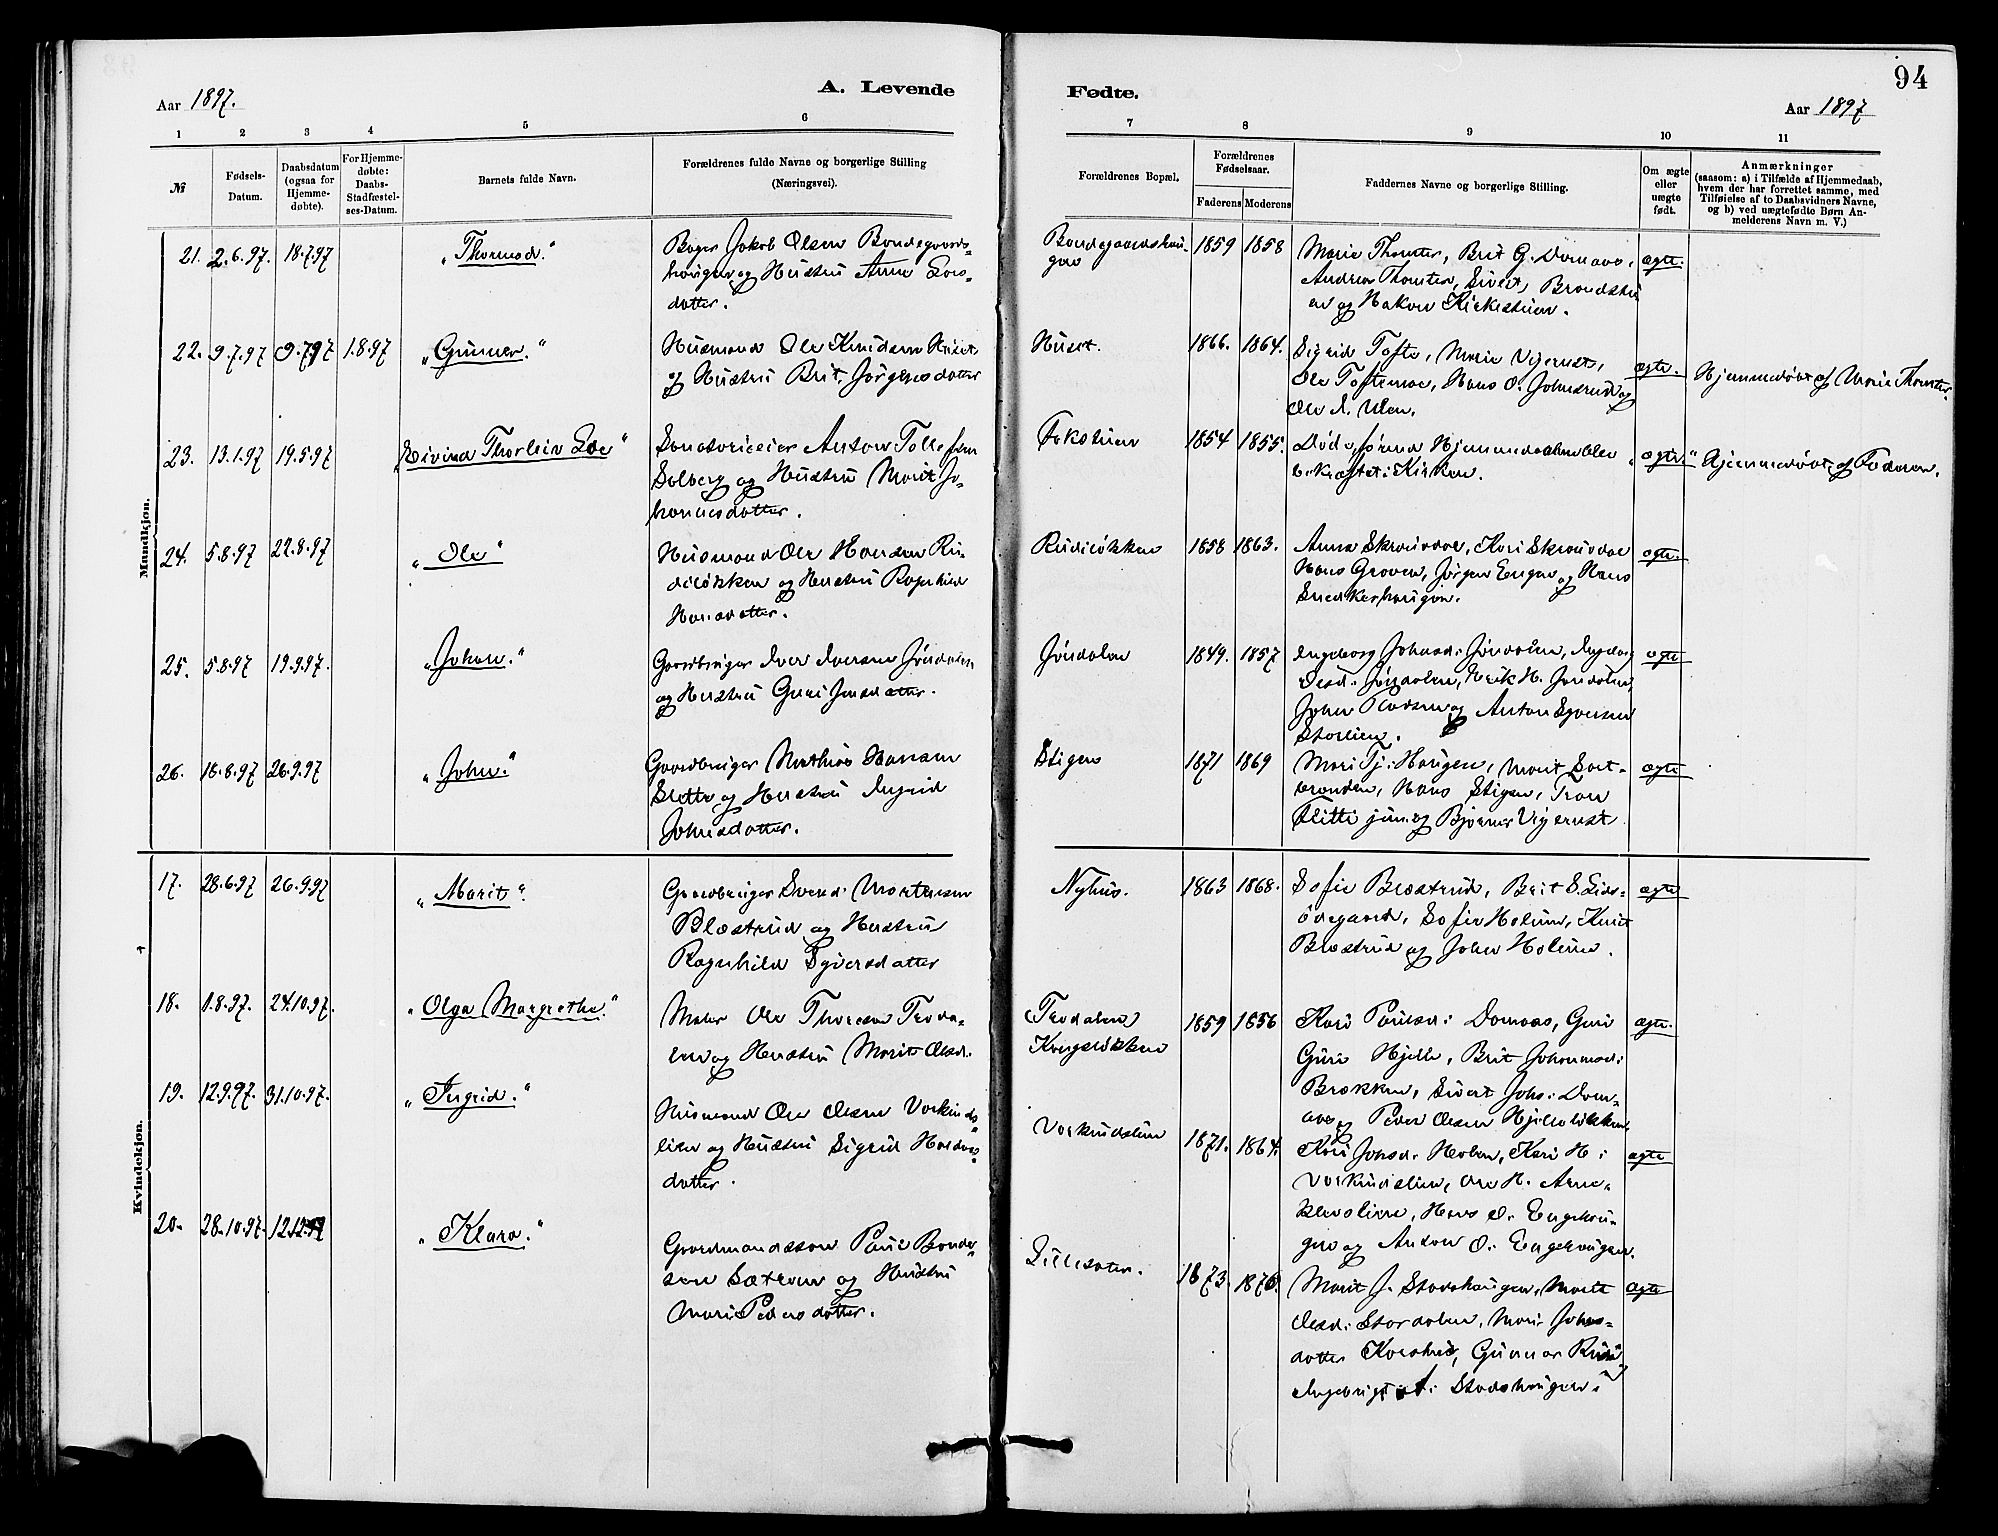 94
Aar 1897.
A. Levende
Fødte.
Aar 1897
1 2 3 4 5 6
7 8 9 10 11
№
Fødsels-
Datum.
Daabsdatum
(ogsaa for
Hjemme-
døbte).
For Hjemme-
døbte:
Daabs-
Stadfæstel-
ses-Datum.
Barnets fulde Navn.
Forældrenes fulde Navne og borgerlige Stilling
(Næringsvei).
Forældrenes Bopæl.
Forældrenes
Fødselsaar.
Faderens Moderens
Faddernes Navne og borgerlige Stilling.
Om ægte
eller
uægte
født.
Anmærkninger
(saasom: a) i Tilfælde af Hjemmedaab,
hvem der har forrettet samme, med
Tilføielse af to Daabsvidners Navne,
og b) ved uægtefødte Børn An-
melderens Navn m. V.)
Mandkjøn.
21. 2.6.97. 18.7.97 "Thormod."
Bager Jakob Olsen Bondegaards-
haugen og Hustru Anne Lars-
datter.
Bondegaardshau-
gen
1859 1858
Marie Thomter, Brit G. Domaas,
Andrea Thomter, Sivert
og Hakon Kirkestuen.
ægte.
22. 9.7.97 9.7.97 1.8.97 "Gunner."
Husmand Ole Knudsen Huset
og Hustru Brit Jørgensdatter
Huset.
1866. 1864.
Sigrid Tofte, Marie Vigerust,
Ole Toftemoe, Hans O. Johnsrud og
Ole
ægte.
Hjemmedøbt af Marie Thomter.
23. 13.1.97 19.5.97 "Eivind Thorleiv Lie"
Sanatorieeier Anton Tollefsen
Solberg og Hustru Marit Jo-
hannesdatter.
Fokstuen
1854 1855.
Døde, førend Hjemmedaaben blev
bekræftet i Kirken.
"ægte."
Hjemmedøbt af Faderen.
24. 5.8.97 22.8.97 "Ole"
Husmand Ole Hansen Ru-
diløkken og Hustru Ragnhild
Hansdatter.
Rudiløkken
1858 1863.
Anna Skrauvdal, Kari Skrauvdal
Hans Groven, Jørgen Engen og Hans
Snedkerhaugen.
ægte.
25. 5.8.97 19.9.97. "Johan."
Gaardbruger Iver Iversen Jøndalen
og Hustru Guri Jensdatter.
Jøndalen
1849. 1857
Ingeborg Johnsd: Jøndalen,
Olesd: Jøndalen, Erik H. Jøndalen,
John og Anton Syversen
Storlien.
ægte
26. 16.8.97 26.9.97 "John."
Gaardbruger Mathias Hansen
Slette og Hustru Ingrid
Johnsdatter.
Stigen
1871 1869
Mari Tj: Haugen, Marit
Hans Stigen, Tron
Flitti jun: og Bjørner Vigerust
ægte
Kvindekjøn.
17. 28.6.97 26.9.97 "Marit".
Gaardbruger Svend Mortensen
Blæstrud og Hustru
Ragnhild Syversdatter
Nyhus.
1863 1868.
Sofie Blæstrud, Brit S. Lids-
ødegaard, Sofie Holum, Knut
Blæstrud og John Holum.
ægte
18. 1.8.97. 24.10.97. "Olga Margrethe."
Maler Ole Thoresen Troda-
len og Hustru Marit Olsd.
Trodalen)
Kongsløkken
1859 1856
Kari Paulsd: Domaas, Guri
Guri Hjelle, Brit Johannesd:
Brækken, Sivert Johs: Dom-
aas og Peder Olsen Hjelleløkken
ægte.
19. 12.9.97. 31.10.97. "Ingrid."
Husmand Ole Olsen Vorkinds-
lien og Hustru Sigrid Haldors-
datter.
Vorkindslien
1871. 1864.
Kari Johsd: Holen, Kari H:
Vorkindslien, Ole H.
Hans O. Engehau-
gen og Anton O. Engehaugen.
ægte
20. 28.10.97. 12.12.97 "Klara."
Gaardmandssøn Paul
Sætren og Hustru
Mari Pedersdatter.
1873. 1876.
Marit J. Stadshaugen, Marit
Olesd: Stordalen, Mari Johns-
datter Gunnar
Ingebrigt Stadshaugen.
ægte